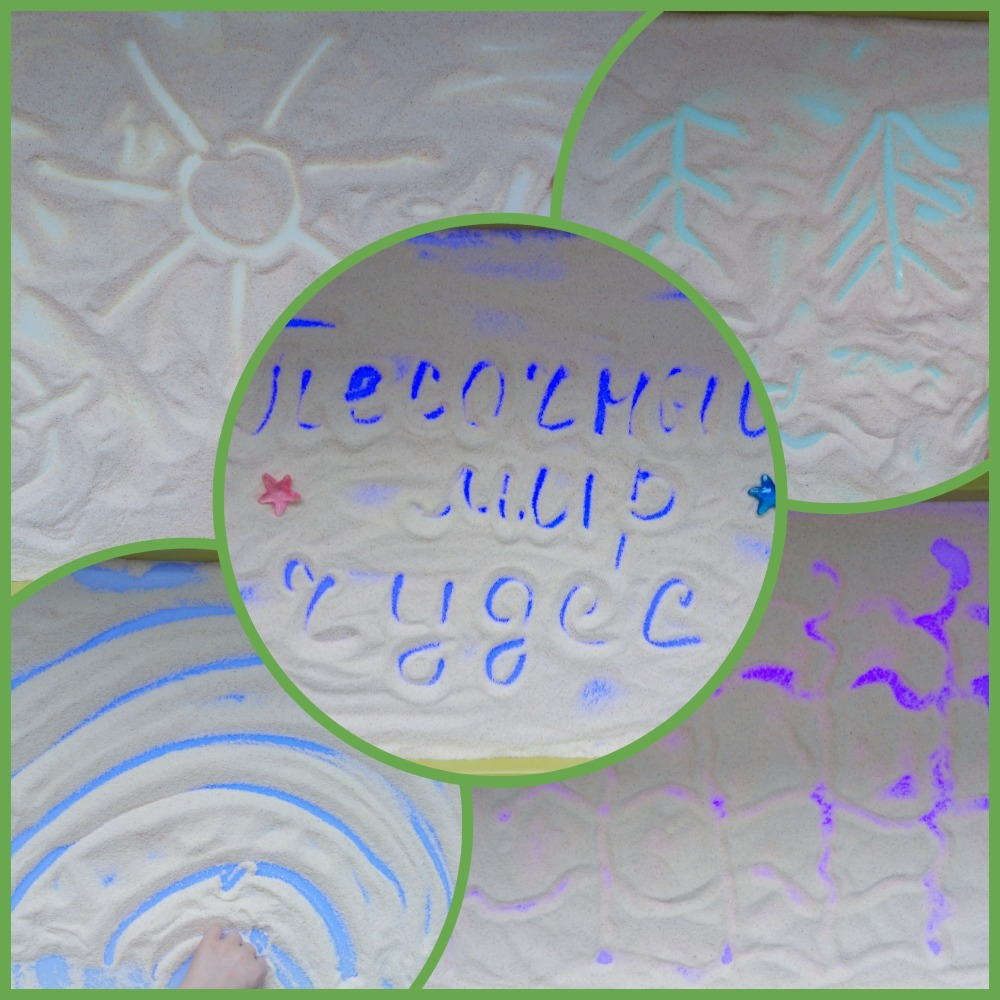 Песочный
мир
чудес